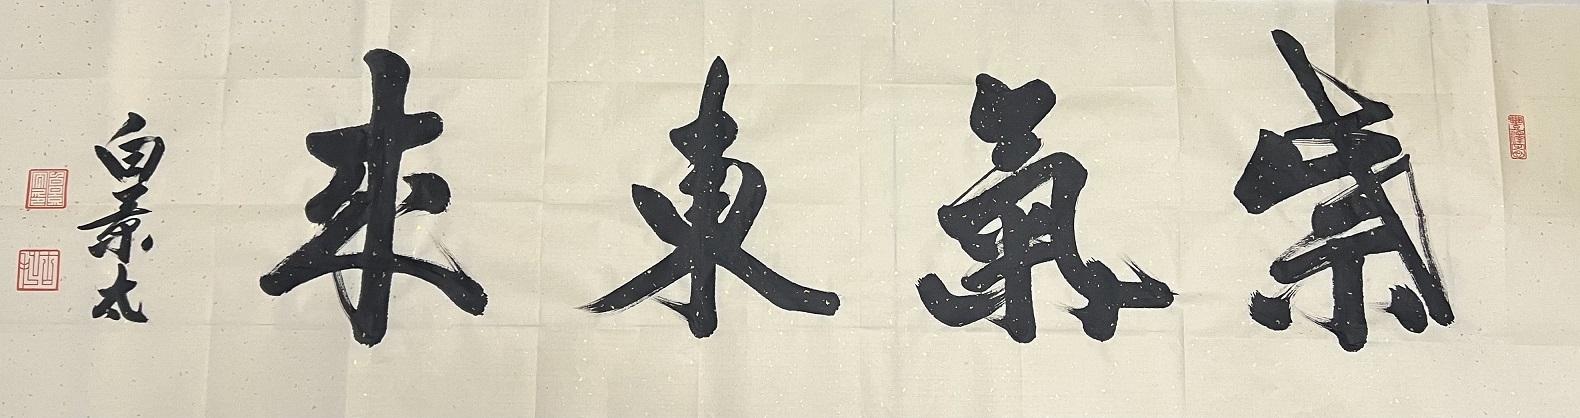 紫氣東來
白景太